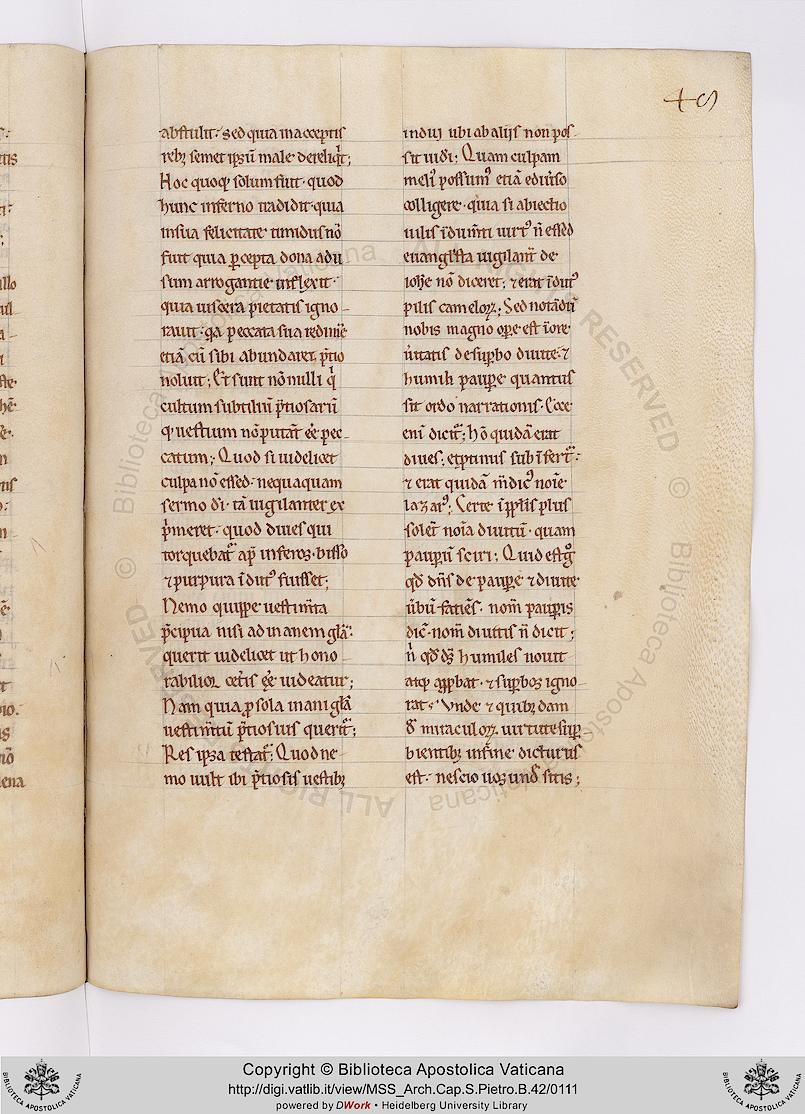 abstulit· sed quia inacceptis
reb; semet ipsū male dereliq̇t;
Hoc quoq; solum fuit· quod
hunc inferno tradidit· quia
insua felicitate timidus nō
fuit quia ꝑcepta dona adu
sum arrogantie inflexit·
quia uiscera pietatis igno-
rauit· qa peccata sua redimē
etiā cū sibi abundaret p̄tio
noluit; Et sunt nōnulli q̇
cultum subtiliū p̄tiosarū
q; uestium nōputāt eē pec-
catum; Quod si uidelicet
culpa nō eēt· nequaquam
sermo dī· tā uigilanter ex
p̄meret· quod diues qui
torquebat᷑ ap̄ inferos· bisso
⁊ purpura īdut᷒ fuisset;
Nemo quippe uestimīta
p̄cipua nisi ad inanem gl̄ā·
querit uidelicet ut hono-
rabilior cet̄is eē uideatur;
Nam quia ꝓ sola inani gl̄ā
uestimītū p̄tiosius querit᷑;
Res ipsa testat᷑; Quod ne-
mo uult ibi p̄tiosis uestib;
indui ubi ab aliis non pos-
sit uidī; Quam culpam
meli᷒ possum᷒ etiā ediūso
colligere· quia si abiectio
uilis īdum̄ti uirt᷒ n̄ eēt
euangl̄ista uigilant̄ de
ioh̄e nō diceret; ⁊ erat īdut᷒
pilis camelorꝝ; Sed notādū
nobis magno oꝑe est īore
ūitatis de suꝑbo diuite ⁊
humili pauꝑe quantus
sit ordo narrationis· Ecce
eni dicit᷑; hō quidā erat
diues; et ꝓtinus subīfert᷑·
⁊ erat quidā mēdic᷒ noīe
lazar᷒; Certe īpp̄lis plus
solēt noīa diuitū· quam
pauꝑū sciri; Quid est g̊
qd̄ dn̄s de pauꝑe ⁊ diuite
ūbū faciēs· nom̄ pauꝑis
dic̄· nom̄ diuitis n̄ dicit;
n̄ qd̄ ds̄ humiles nouit
atq; aꝓbat· ⁊ suꝑbos igno-
rat; Vnde ⁊ quib; dam
de miraculorꝝ uirtute suꝑ-
bientib; infine dicturus
est· nescio uos und̄ sitis;
http://digi.vatlib.it/view/MSS_Arch.Cap.S.Pietro.B.42/0111
Copyright © Biblioteca Apostolica Vaticana
powered by DWork • Heidelberg University Library